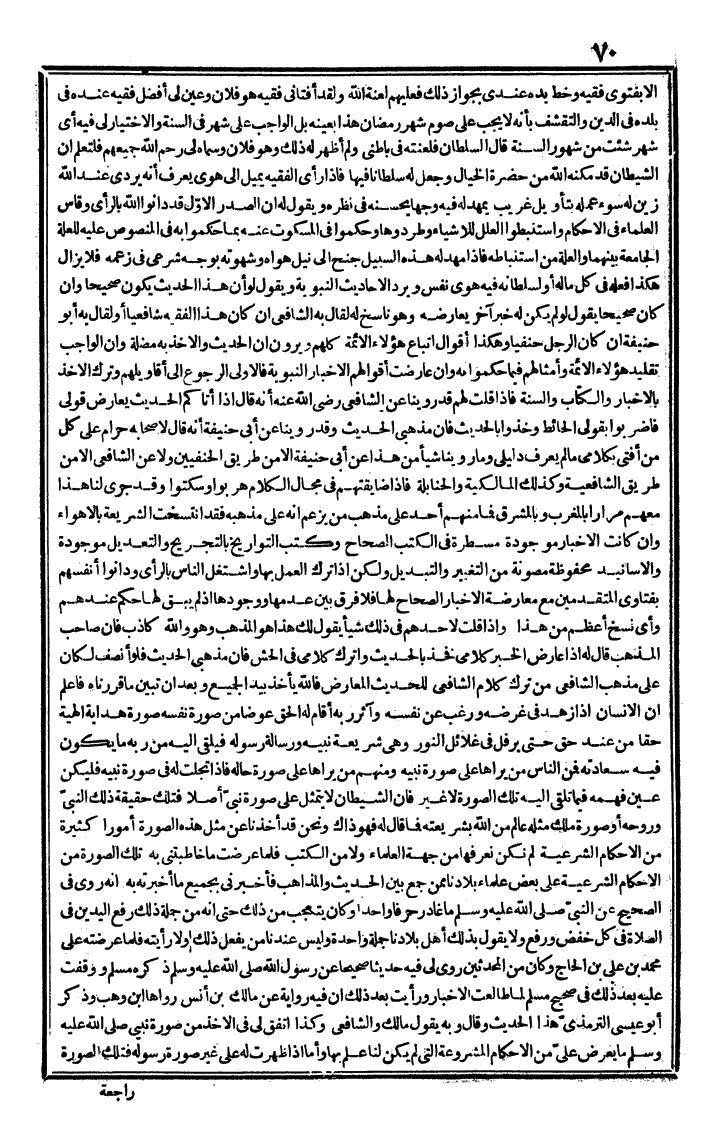 ٧٠
الا بفتوى فقيه وخط يده عندى بجواز ذلك فعليهم لعنة الله ولقد أفتانى فقيه هو فلان وعين لى أفضل فقيه عنده فى
بلده فى الدين والتقشف بأنه لا يجب على صوم شهر رمضان هذا بعينه بل الواجب على شهر فى السنة والاختيار لى فيه أى
شهر شئت من شهور السنة قال السلطان فلعنته فى باطنى ولم أظهر له ذلك وهو فلان وسماه لى رحم الله جميعهم فلتعلم ان
الشيطان قد مكنه الله من حضرة الخيال وجعل له سلطانا فيها فاذا رأى الفقيه يميل الى هوى يعرف أنه يردى عند الله
زين له سوء عمله بتأويل غريب يمهد له فيه وجها يحسنه فى نظره ويقول له ان الصدر الاوّل قد دانوا الله بالرأى وقاس
العلماء فى الاحكام واستنبطوا العلل للاشياء وطردوها وحكموا فى المسكوت عنه بما حكموا به فى المنصوص عليه للعلة
الجامعة بينهما والعلة من استنباطه فاذا مهد له هذه السبيل جنح الى نيل هواه وشهوته بوجه شرعى فى زعمه فلا يزال
هكذا فعله فى كل ماله أولسلطانه فيه هوى نفس ويرد الاحاديث النبوية ويقول لو أن هذا الحديث يكون صحيحا وان
كان صحيحا يقول لو لم يكن له خبر آخر يعارضه وهو ناسخ له لقال به الشافعى ان كان هذا الفقيه شافعيا أو لقال به أبو
حنيفة ان كان الرجل حنفيا وهكذا أقوال اتباع هؤلاء الائمة كلهم ويرون ان الحديث والاخذ به مضلة وان الواجب
تقليد هؤلاء الائمة وأمثالهم فيما حكموا به وان عارضت أقوالهم الاخبار النبوية فالاولى الرجوع الى أقاويلهم وترك الاخذ
بالاخبار والكتاب والسنة فاذا قلت لهم قدروينا عن الشافعى رضى الله عنه أنه قال اذا أتاكم الحديث يعارض قولى
فاضربوا بقولى الحائط وخذوا بالحديث فان مذهبى الحديث وقدروينا عن أبى حنيفة أنه قال لاصحابه حرام على كل
من أفتى بكلامى مالم يعرف دليلى وماروينا شيأ من هذا عن أبى حنيفة الا من طريق الحنفيين ولا عن الشافعى الا من
طريق الشافعية وكذلك المالكية والحنابلة فاذا ضايقتهم فى مجال الكلام هربوا وسكتوا وقد جرى لنا هذا
معهم مرارا بالمغرب وبالمشرق فما منهم أحد على مذهب من يزعم انه على مذهبه فقد انتسخت الشريعة بالاهواء
وان كانت الاخبار موجودة مسطرة فى الكتب الصحاح وكتب التواريخ بالتجريح والتعديل موجودة
والاسانيد محفوظة مصونة من التغيير والتبديل ولكن اذا ترك العمل بها واشتغل الناس بالرأى ودانوا أنفسهم
بفتاوى المتقدمين مع معارضة الاخبار الصحاح لها فلا فرق بين عدمها ووجودها اذ لم يبق لها حكم عندهم
وأى نسخ أعظم من هذا واذا قلت لاحدهم فى ذلك شيأ يقول لك هذا هو المذهب وهو والله كاذب فان صاحب
المذهب قال له اذا عارض الخبر كلامى فخذ بالحديث واترك كلامى فى الحش فان مذهبى الحديث فلو أنصف لكان
على مذهب الشافعى من ترك كلام الشافعى للحديث المعارض فالله يأخذ بيد الجميع وبعد ان تبين ما قررناه فاعلم
ان الانسان اذا زهد فى غرضه ورغب عن نفسه وآثر ربه أقام له الحق عوضا من صورة نفسه صورة هداية الهية
حقا من عند حق حتى يرفل فى غلائل النور وهى شريعة نبيه ورسالة رسوله فيلقى اليه من ربه ما يكون
فيه سعادته فمن الناس من يراها على صورة نبيه ومنهم من يراها على صورة حاله فاذا تجلت له فى صورة نبيه فليكن
عين فهمه فيما تلقى اليه تلك الصورة لا غير فان الشيطان لا يتمثل على صورة نبىّ أصلا فتلك حقيقة ذلك النبىّ
وروحه أو صورة ملك مثله عالم من الله بشريعته فما قال له فهو ذاك ونحن قد أخذنا عن مثل هذه الصورة أمورا كثيرة
من الاحكام الشرعية لم نكن نعرفها من جهة العلماء ولا من الكتب فلما عرضت ما خاطبتنى به تلك الصورة من
الاحكام الشرعية على بعض علماء بلادنا ممن جمع بين الحديث والمذاهب فأخبرنى بجميع ما أخبرته به انه روى فى
الصحيح عن النبىّ صلى الله عليه وسلم ما غادر حرفا واحدا وكان يتعجب من ذلك حتى انه من جملة ذلك رفع اليدين فى
الصلاة فى كل خفض ورفع ولا يقول بذلك أهل بلادنا جملة واحدة وليس عندنا من يفعل ذلك ولا رأيته فلما عرضته على
محمد بن على بن الحاج وكان من المحدثين روى لى فيه حديثا صحيحا عن رسول الله صلى الله عليه وسلم ذكره مسلم ووقفت
عليه بعد ذلك فى صحيح مسلم لما طالعت الاخبار ورأيت بعد ذلك ان فيه رواية عن مالك بن أنس رواها ابن وهب وذكر
أبو عيسى الترمذىّ هذا الحديث وقال وبه يقول مالك والشافعى وكذا اتفق لى فى الاخذ من صورة نبىّ صلى الله عليه
وسلم ما يعرض علىّ من الاحكام المشروعة التى لم يكن لنا علم بها وأما اذا ظهرت له على غير صورة رسوله فتلك الصورة
راجعة